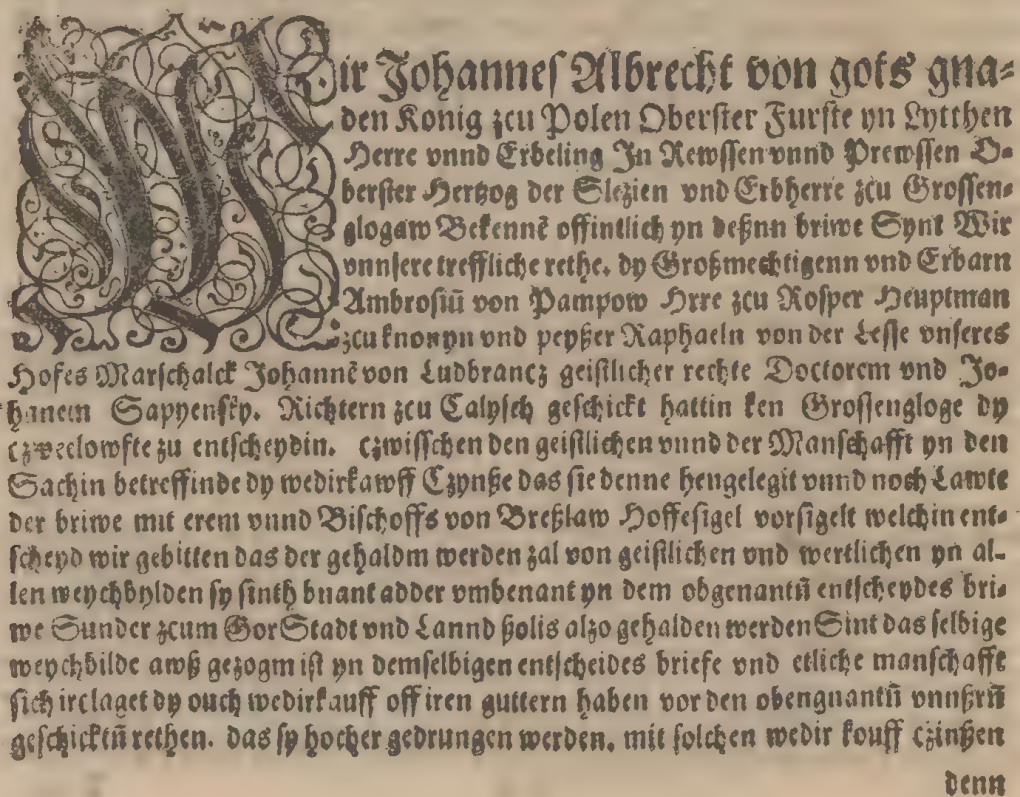 Wir Johannes Albrecht von gots gna⸗
den Konig zcu Polen Oberster Furste yn Lytthen
Herre vnnd Erbeling In Rewssen vnnd Prewssen O⸗
berster Hertzog der Slezien vnd Erbherre zcu Grossen⸗
glogaw Bekennē offintlich yn deßnn briwe Synt Wir
vnnsere treffliche rethe. dy Großmechtigenn vnd Erbarn
Ambrosiū von Pampow Hrre zcu Rosper Heuptman
zcu knonyn vnd peyßer Raphaeln von der Lesse vnseres
Hofes Marschalck Johannē von Ludbrancz geistlicher rechte Doctorem vnd Jo⸗
hanem Sappensky. Richtern zcu Calysch geschickt hattin ken Grossengloge dy
czweelowfte zu entscheydin. czwisschen den geistlichen vnnd der Manschafft yn den
Sachin betreffinde dy wedirkawff Czynße das sie denne hengelegit vnnd noch Lawte
der briwe mit erem vnnd Bischoffs von Breßlaw Hoffesigel vorsigelt welchin ent⸗
scheyd wir gebitten das der gehaldm werden zal von geistlichen vnd wertlichen yn al⸗
len weychbylden sy sinth bnant adder vmbenant yn dem obgenantū entscheydes bri⸗
we Sunder zcum Gor Stadt vnd Lannd ßolis alzo gehalden werden Sint das selbige
weychbilde awß gezogm ist yn demselbigen entscheides briefe vnd etliche manschafft
sich irclaget dy ouch wedirkauff off iren guttern haben vor den obengnantū vnnßrū
geschicktū rethen. das sy hocher gedrungen werden. mit solchen wedir kouff czinßen
denn